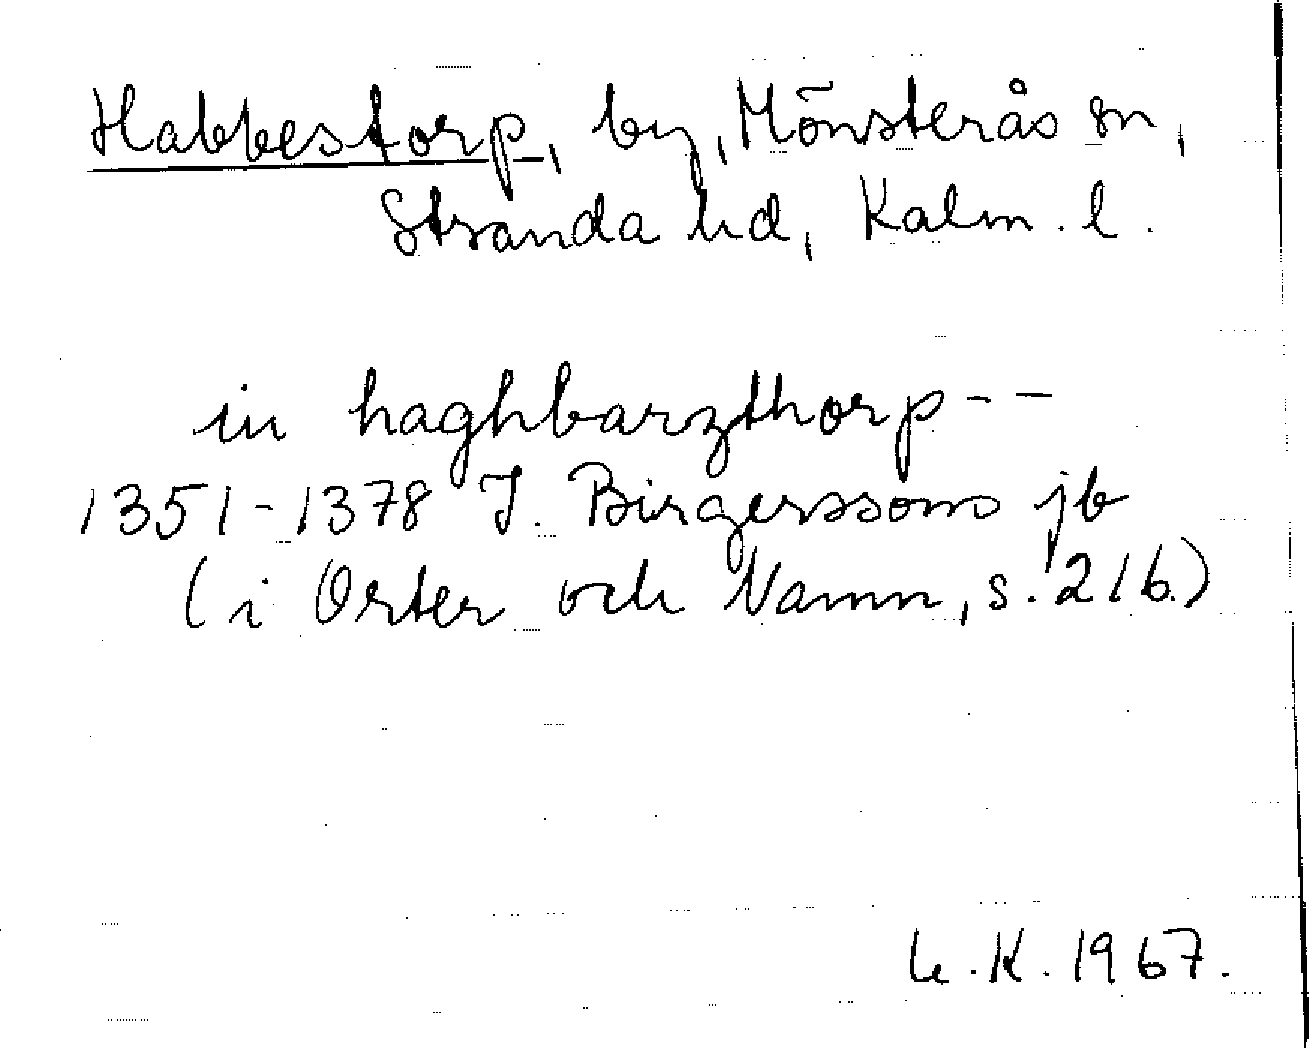 Habbestorp, by, Mönsterås sn,
Stranda hd, Kalm. l.
in haghbarzthorp - -
1351-1378 J. Birgerssons jb
(i Orter och Namn, s. 216.)
L.K. 1967.